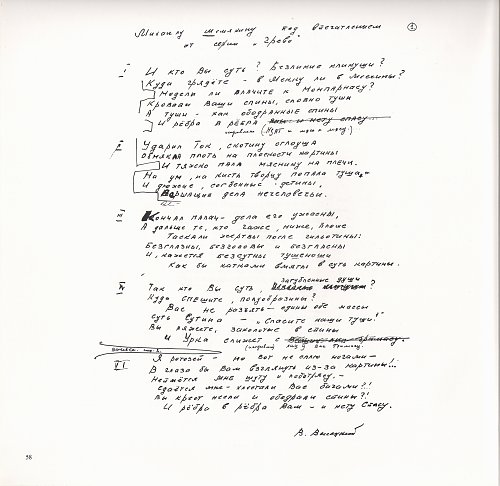 Михаилу Шемякину под впечатлением
от серии "Чрево"
1
I И кто Вы суть? Безликие кликуши?
Куда грядёте - в Мекку ли в Мессины?
Модели ли влачите к Монпарнасу?
Кровавы Ваши спины, словно туши
А туши - как ободранные спины
И рёбра в рёбра нету спасу
II Ударил Ток, скотину оглоуша
Обмякла плоть на плоскости картины
И тяжко пала мяснику на плечи.
На ум, на кисть творцу попала туша
И дюжие, согбенные детины,
Вершащие дела нечеловечьи.
III Кончал палач - дела его ужасны,
А дальше те, кто гаже, ниже, плоше
Таскали жертвы после гильотины:
Безглазны, безголовы и безгласны
И, кажется бессутны тушеноши
Как бы катками вмяты в суть картины.
загубленные души
IV Так кто Вы суть,
Куда спешите, полуобразины?
Вас не разъять - едины обе массы
Суть Сутина - "Спасите наши туши!"
Вы ляжете, заколотые в спины
И Урка слижет с
Я ротозей - но вот не сплю ночами -
VI В глаза бы Вам взглянуть из-за картины!..
Неймётся мне шуту и лоботрясу -
Сдаётся мне - хлестали Вас бичами?!
Вы крест несли и ободрали спины?!
И рёбра в рёбра Вам - и нету Спасу.
В. Высоцкий
58